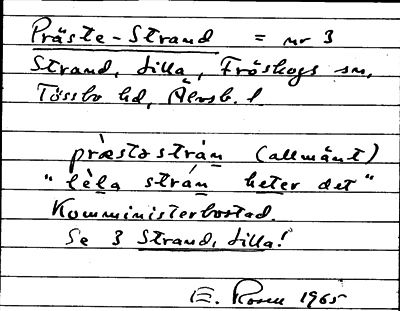 Präste-Strand = nr 3
Strand, Lilla, Fröskogs sn,
Tössbo hd, Älvsb. l
præ̀stəstrán (allmänt)
"lèla strán heter det"
Komministerbostad.
Se 3 Strand, Lilla!
E. Rosen 1965